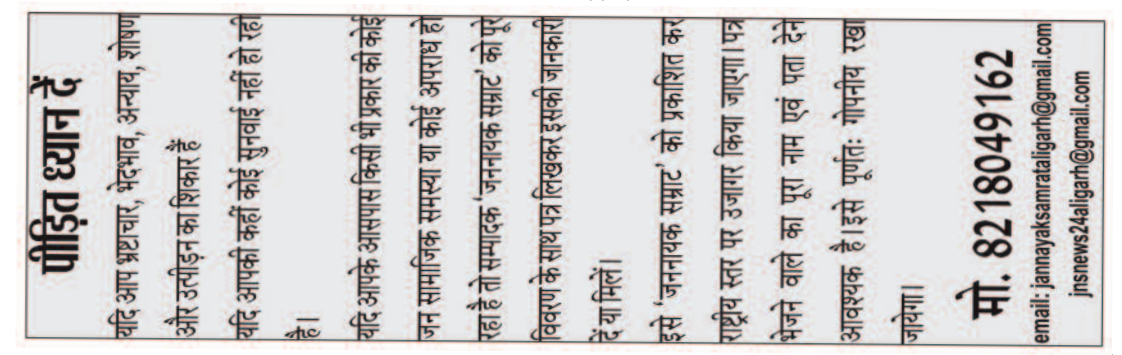 पीड़ित ध्यान दें
यदि आप भ्रष्टाचार, भेदभाव, अन्याय, शोषण
और उत्पीड़न का शिकार हैं
यदि आपकी कहीं कोई सुनवाई नहीं हो रही
है।
यदि आपके आसपास किसी भी प्रकार की कोई
जन सामाजिक समस्या या कोई अपराध हो
रहा है तो सम्पादक 'जननायक सम्राट' को पूर
विवरण के साथ पत्र लिखकर इसकी जानकारी
दें या मिलें।
इसे 'जननायक सम्राट' को प्रकाशित कर
राष्ट्रीय स्तर पर उजागर किया जाएगा। पत्र
भेजने वाले का पूरा नाम एवं पता देन
आवश्यक है। इसे पूर्णतः गोपनीय रखा
जायेगा।
मो. 8218049162
email: jannayaksamrataligarh@gmail.com
jnsnews24aligarh@gmail.com